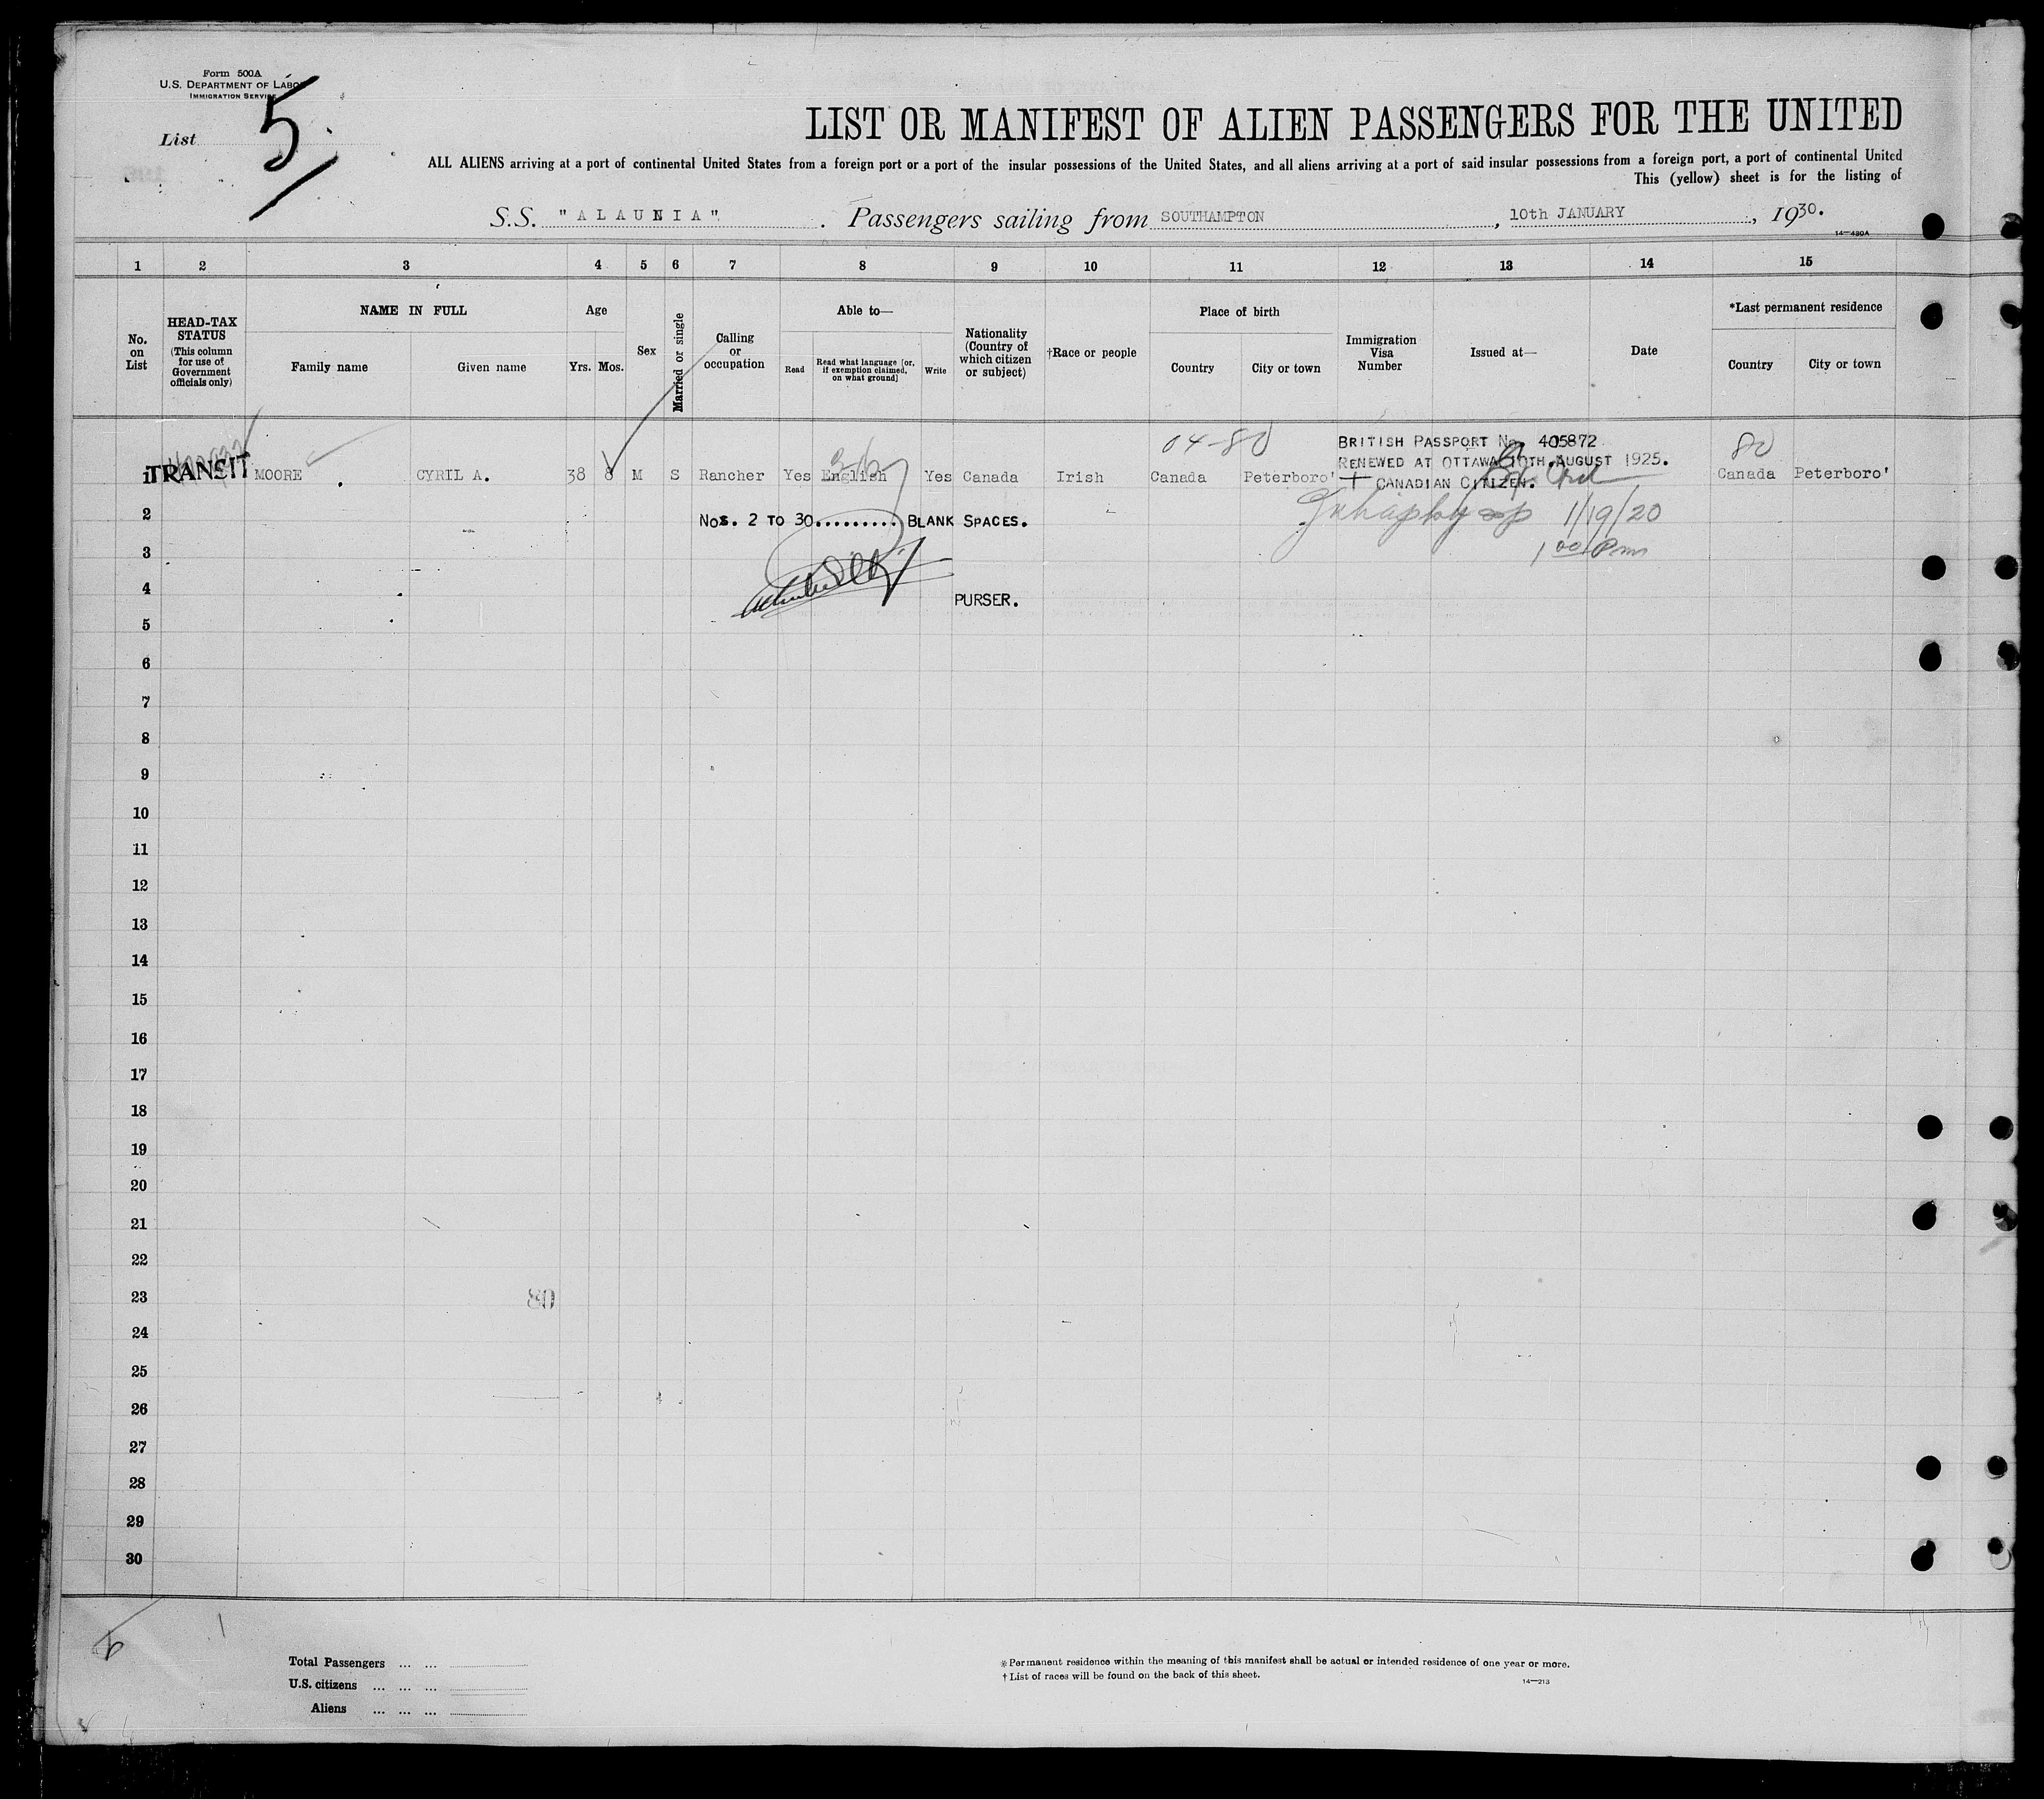 Form 500A
U.S. DEPARTMENT OF LABOR
IMMIGRATION SERVICE
List 5
LIST OR MANIFEST OF ALIEN PASSENGERS FOR THE UNITED
ALL ALIENS arriving at a port of continental United States from a foreign port or a port of the insular possessions of the United States, and all aliens arriving at a port of said insular possessions from a foreign port, a port of continental United
This (yellow) sheet is for the listing of
S.S. "ALAUNIA". Passengers sailing from SOUTHAMPTON, 10th JANUARY, 1930.
14—480A
1 2 3 4 5 6 7 8 9 10 11 12 13 14 15
No. on List
HEAD-TAX STATUS (This column for use of Government officials only)
NAME IN FULL
Family name Given name
Age
Yrs. Mos.
Sex
Married or single
Calling or occupation
Able to—
Read Read what language [or, if exemption claimed, on what ground] Write
Nationality (Country of which citizen or subject)
†Race or people
Place of birth
Country City or town
Immigration Visa Number
Issued at—
Date
*Last permanent residence
Country City or town
04-80 BRITISH PASSPORT No. 405872 80
RENEWED AT OTTAWA 10TH.AUGUST 1925.
1 TRANSIT MOORE CYRIL A. 38 8 M S Rancher Yes English Yes Canada Irish Canada Peterboro' CANADIAN CITIZEN. Canada Peterboro'
2 Nos. 2 TO 30.......... BLANK SPACES. 1/19/20
3 1 00 Pm
4 PURSER.
5
6
7
8
9
10
11
12
13
14
15
16
17
18
19
20
21
22
23
24
25
26
27
28
29
30
Total Passengers ... ...
U.S. citizens ... ... ...
Aliens ... ... ...
* Permanent residence within the meaning of this manifest shall be actual or intended residence of one year or more.
† List of races will be found on the back of this sheet.
14—213